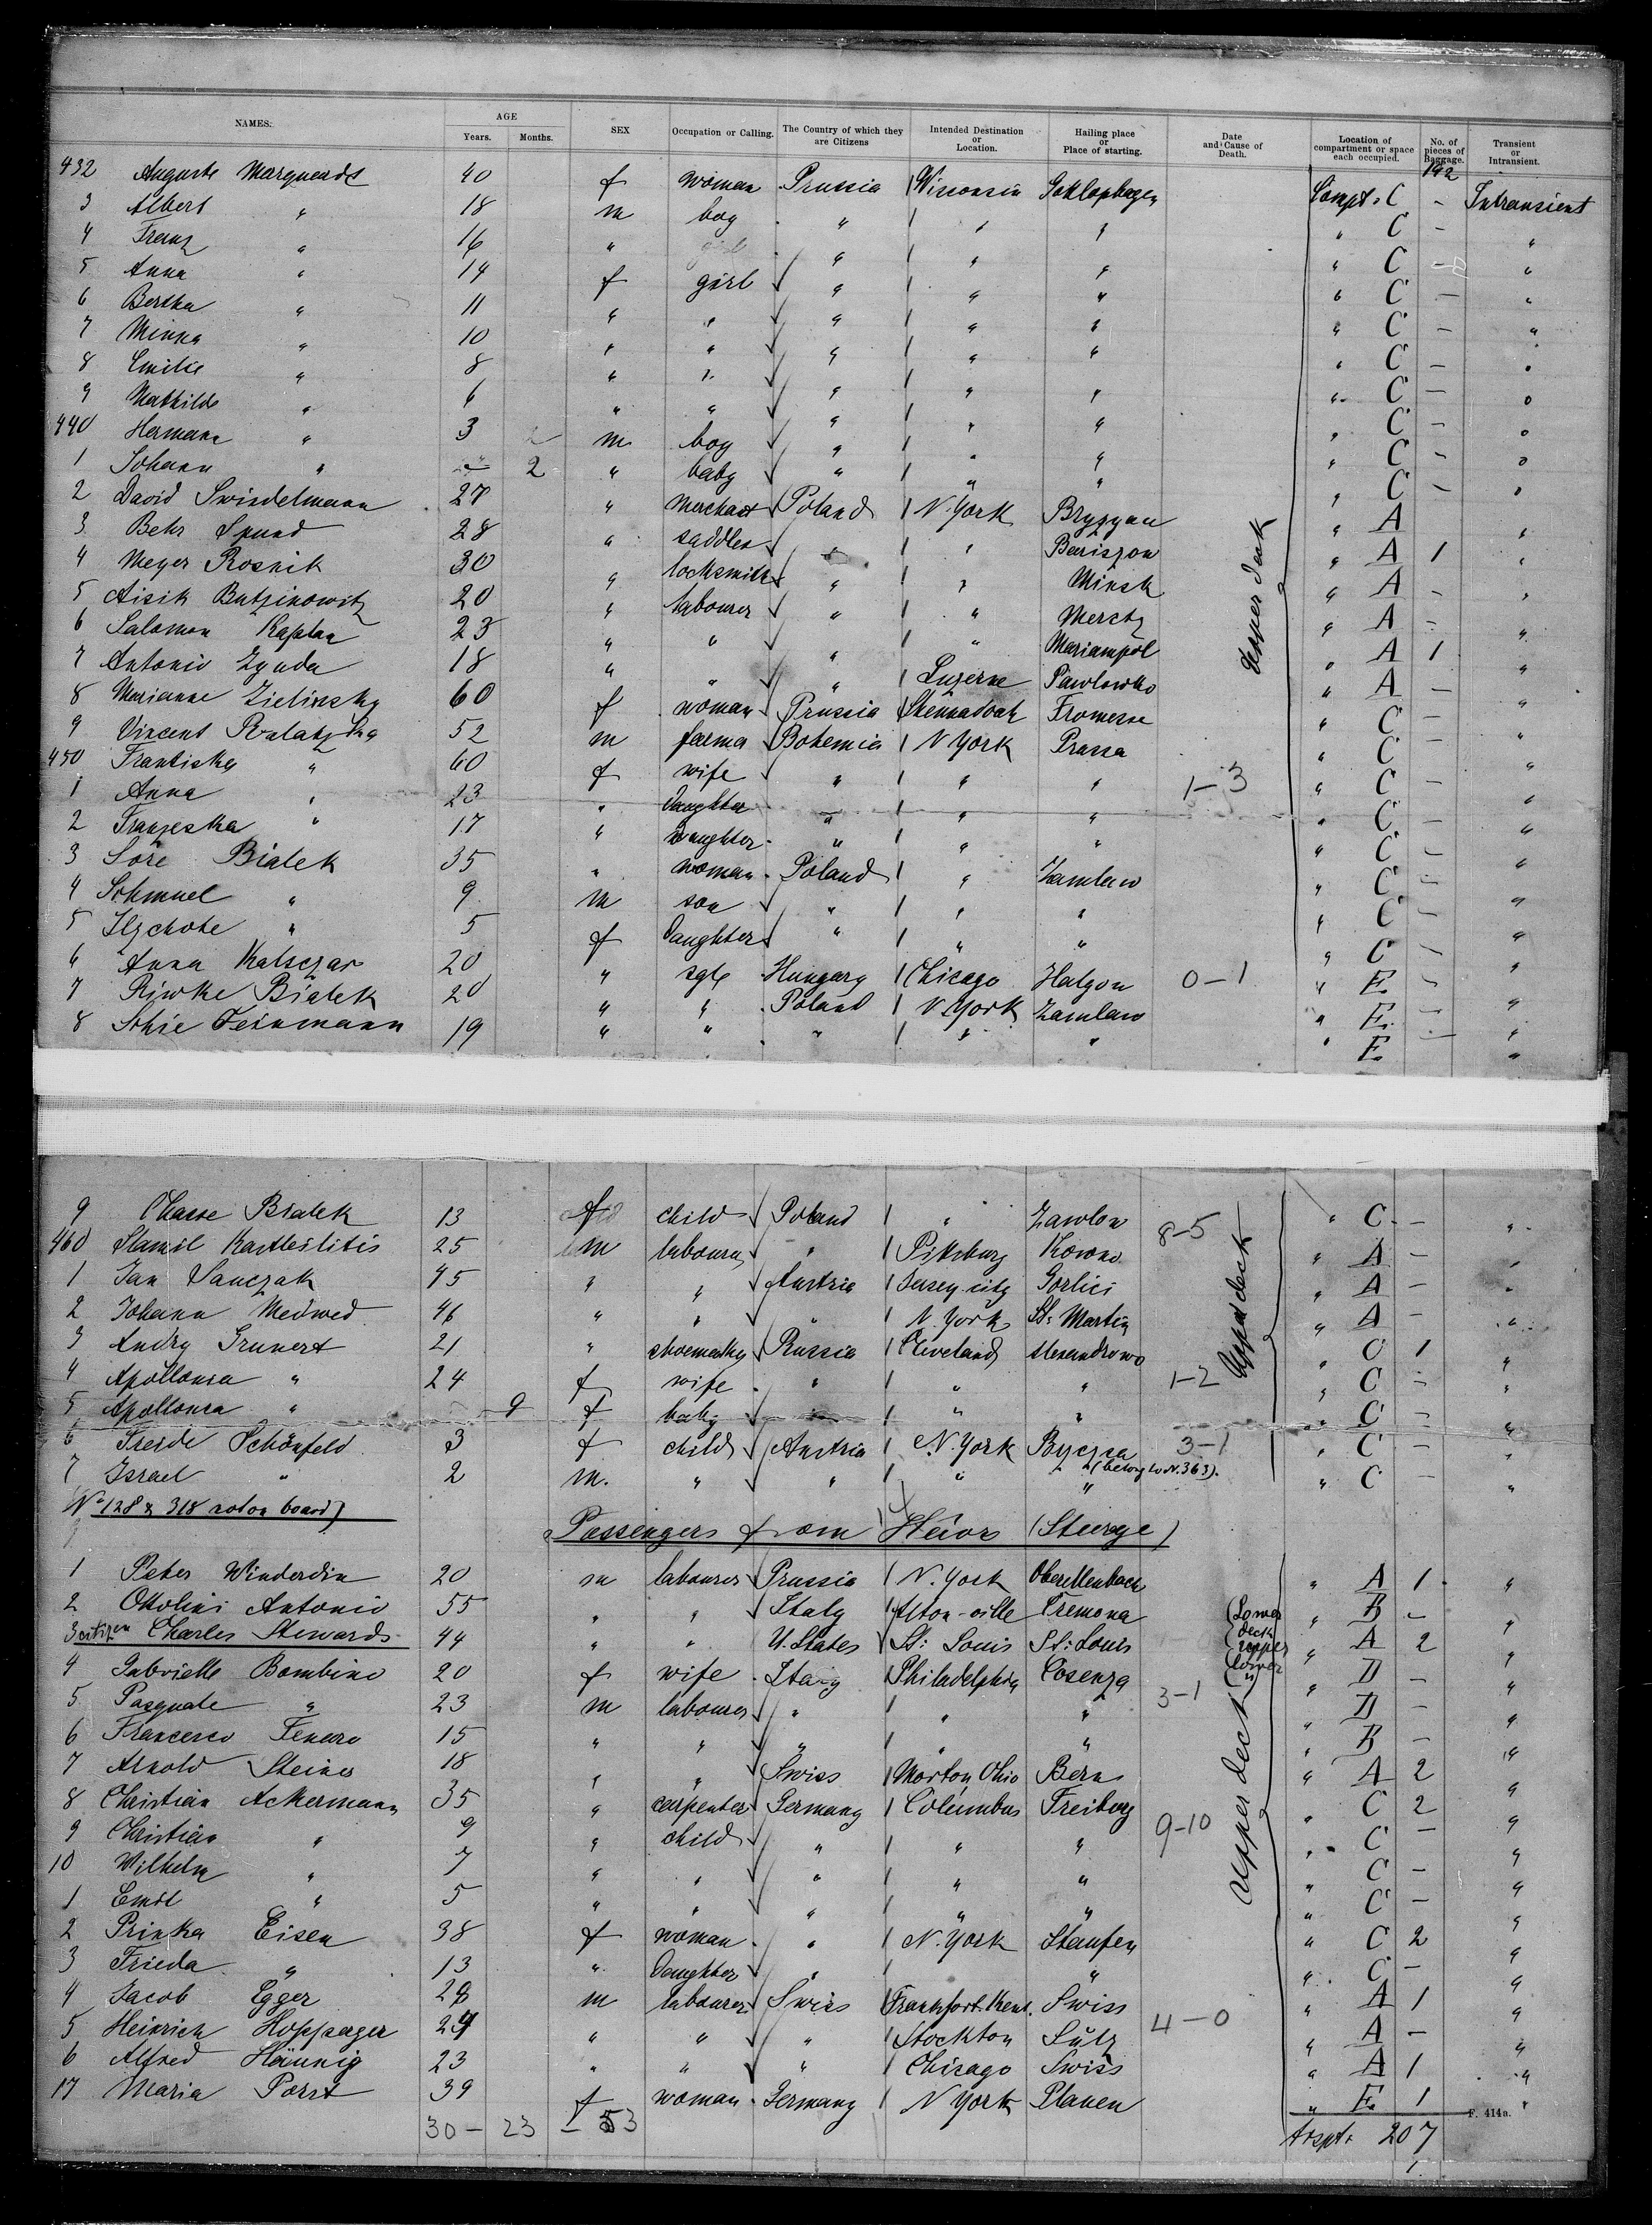 NAMES. AGE Years. Months. SEX Occupation or Calling. The Country of which they are Citizens Intended Destination or Location. Hailing place or Place of starting. Date and Cause of Death. Location of compartment or space each occupied. No. of pieces of Baggage. Transient or Intransient.
192
432 Auguste Marquardt 40 f woman Prussia Wisconsin Compt. C - Intransient
3 Albert " 18 m boy " " " " C - "
4 Franz " 16 " " " " " C - "
5 Anna " 14 f girl " " " " C - "
6 Bertha " 11 " " " " " " C - "
7 Minna " 10 " " " " " " C - "
8 Emilie " 8 " " " " " " C - "
9 Mathilde " 6 " " " " " " C - "
440 Hermann " 3 m boy " " " " C - "
1 Johann " 2 " baby " " " " C - "
2 David Swindelmann 27 " merchant Poland N. York " A "
3 Behr Spund 28 " saddler " " " A 1 "
4 Meyer Rosnik 30 " locksmith " " Minsk " A - "
5 Aisik Butzinowitz 20 " labourer " " Meretz " A - "
6 Salomon Kaplan 23 " " " " Mariampol " A 1 "
7 Antonio Zynda 18 " " " Luzerne Pawlowko " A - "
8 Marianne Zielinsky 60 f woman Prussia Shennadoah Fromesse " C - "
9 Vincent 52 m farmer Bohemia N York Prassa " C - "
450 Frantiska " 60 f wife " " " 1-3 " C - "
1 Anna " 23 " Daughter " " " " C - "
2 Franzeska " 17 " Daughter " " " " C - "
3 Sore Bialek 35 " woman Poland " Zamlaw " C - "
4 Schmuel " 9 m son " " " " C - "
5 " 5 f Daughter " " " " C - "
6 Anna Katsczar 20 " sgle Hungary Chicago Halgon 0-1 " E - "
7 Riwke Bialek 20 " " Poland N. York Zamlaw " E - "
8 Schie Feinmann 19 " " " " " " E "
Upper deck
9 Chasse Bialek 13 f child Poland " Zawlow 8-5 " C - "
460 25 m labourer " Pittsburg Kowno " A - "
1 Jan Sanczak 45 " " Austria Jersey city Gorlici " A - "
2 Johann Medwed 46 " " " N. York St. Martin " A - "
3 Andry Grunert 21 " shoemaker Russia Cleveland Alexandrowo " C 1 "
4 Apollonia " 24 f wife " " " 1-2 " C - "
5 Apollonia " 9 f baby " " " " C - "
6 Freide Schönfeld 3 f child Austria N. York Byczna 3-1 " C - "
7 Israel " 2 m. " " " " (belong to N. 363). " C - "
Upper deck
No 128 & 318 not on board)
Passengers from Havre (Steerage)
1 Peter Winderdin 20 m labourer Prussia N. York Oberellenbach " A 1 "
2 Ottolini Antonio 55 " " Italy Alton-ville Cremona (Lower deck " B - "
3 citizen Charles Stewards 44 " " U. States St: Louis St: Louis (upper " A 2 "
4 Gabrielle Bombino 20 f wife Italy Philadelphia Cosenza (lower " D - "
5 Pasquale " 23 m labourer " " " 3-1 (" " D - "
6 Francesco Fenaro 15 " " " " " " B - "
7 Arnold Steiner 18 " " Swiss Morton Ohio Bern " A 2 "
8 Christian Ackermann 35 " carpenter Germany Columbus Freiburg " C 2 "
9 Christian " 9 " child " " " 9-10 " C - "
10 Wilhelm " 7 " " " " " " C - "
1 Emil " 5 " " " " " " C - "
2 Prinka Eisen 38 f woman " N. York Staufen " C 2 "
3 Frieda " 13 " Daughter " " " " C - "
4 Jacob Egger 28 m labourer Swiss Frankfort Kent. Swiss " A 1 "
5 Heinrich Hopperger 24 " " " Stockton Sulz 4-0 " A - "
6 Alfred Hännig 23 " " " Chicago Swiss " A 1 "
17 Maria Porst 39 f woman Germany N York Plauen " E 1 "
Upper deck
F. 414a.
30 - 23 - 53 207